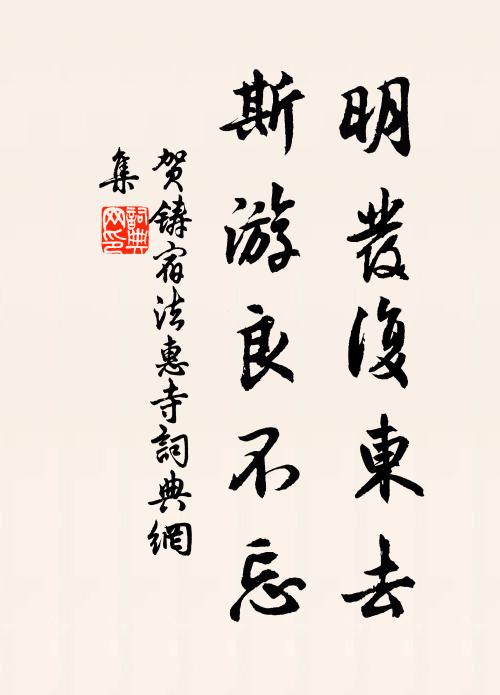 明發復東去
斯游良不忘
贺鑄宿法惠寺詞典網
集
詞典
网印